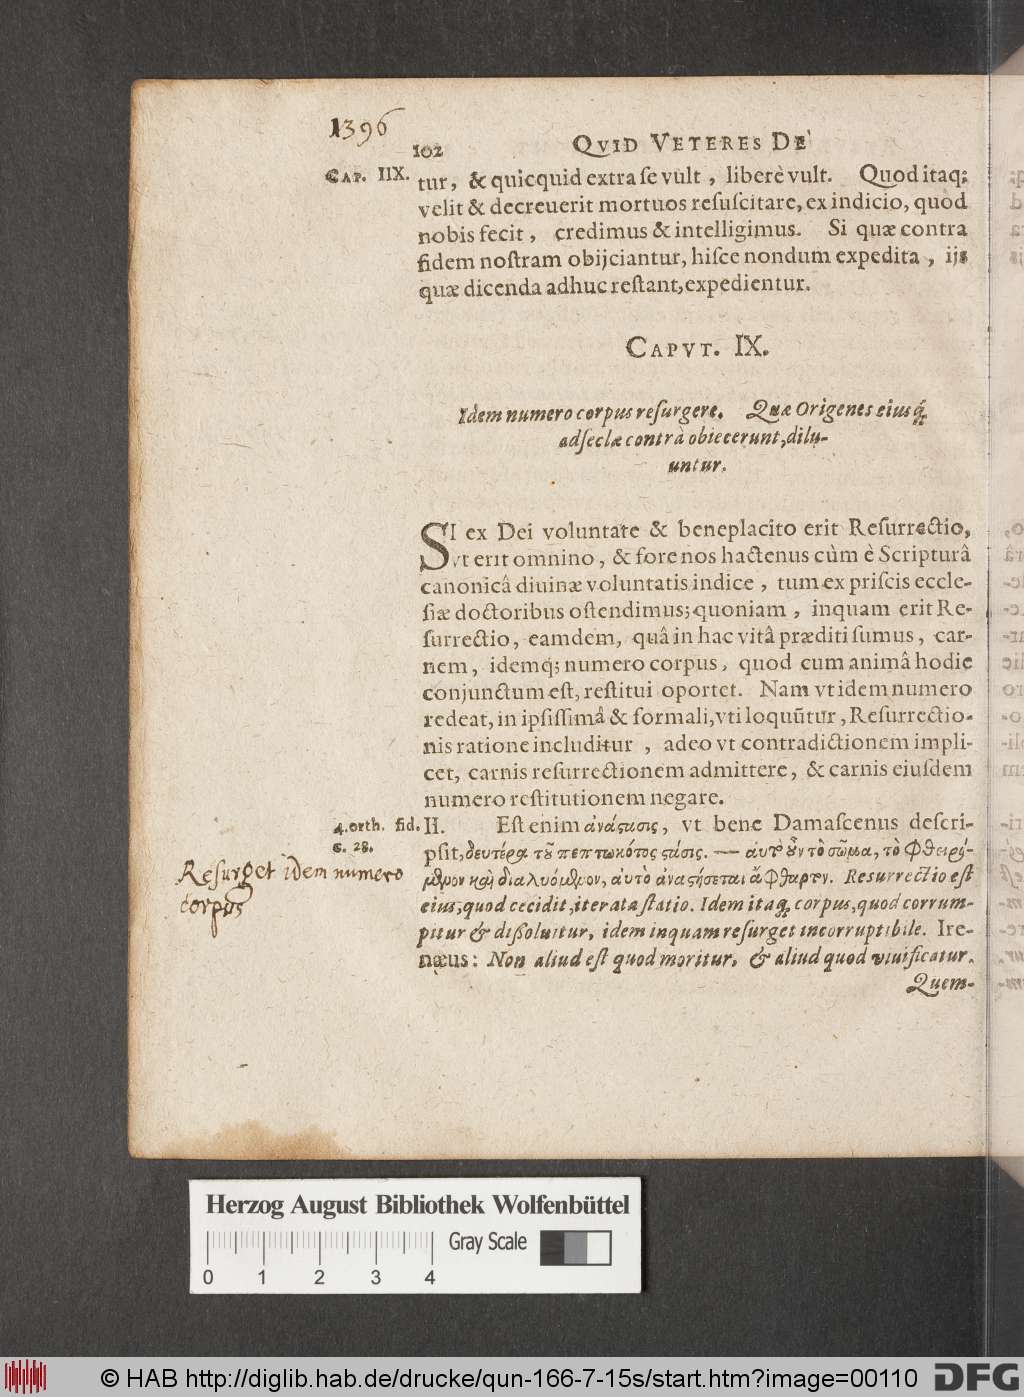 1396
102 QVID VETERES DE
CAP. IIX. tur, & quicquid extra se vult, liberè vult. Quod itaq;
velit & decreuerit mortuos resuscitare, ex indicio, quòd
nobis fecit, credimus & intelligimus. Si quæ contra
fidem nostram obijciantur, hisce nondum expedita, ijs
quæ dicenda adhuc restant, expedientur.
CAPVT. IX.
Idem numero corpus resurgere. Quæ Origenes eiusq́
adseclæ contrà obiecerunt, dilu-
untur.
SI ex Dei voluntate & beneplacito erit Resurrectio,
vt erit omnino, & fore nos hactenus cùm è Scripturâ
canonicâ diuinæ voluntatis indice, tum ex priscis eccle-
siæ doctoribus ostendimus; quoniam, inquam erit Re-
surrectio, eamdem, quâ in hac vitâ præditi sumus, car-
nem, idemq́; numero corpus, quod cum animâ hodie
conjunctum est, restitui oportet. Nam vt idem numero
redeat, in ipsissimâ & formali, vti loquũtur, Resurrectio-
nis ratione includitur, adeo vt contradictionem impli-
cet, carnis resurrectionem admittere, & carnis eiusdem
numero restitutionem negare.
4. orth. fid. II. Est enim ἀνάϛασις, vt bene Damascenus descri-
c. 28. psit, δευτέρα τοῦ πεπτωκότος ϛάσις. — αὐτὸ οὖν τὸ σῶμα, τὸ φθειρό-
Resurget idem numero
corpus
μενον καὶ διαλυόμενον, αὐτὸ ἀναϛήσεται ἄφθαρτον. Resurrectio est
eius, quod cecidit, iterata statio. Idem itaq́ corpus, quod corrum-
pitur & dissoluitur, idem inquam resurget incorruptibile. Ire-
næus: Non aliud est quod moritur, & aliud quod viuificatur.
Quem-
Herzog August Bibliothek Wolfenbüttel
Gray Scale
0 1 2 3 4
© HAB http://diglib.hab.de/drucke/qun-166-7-15s/start.htm?image=00110 DFG